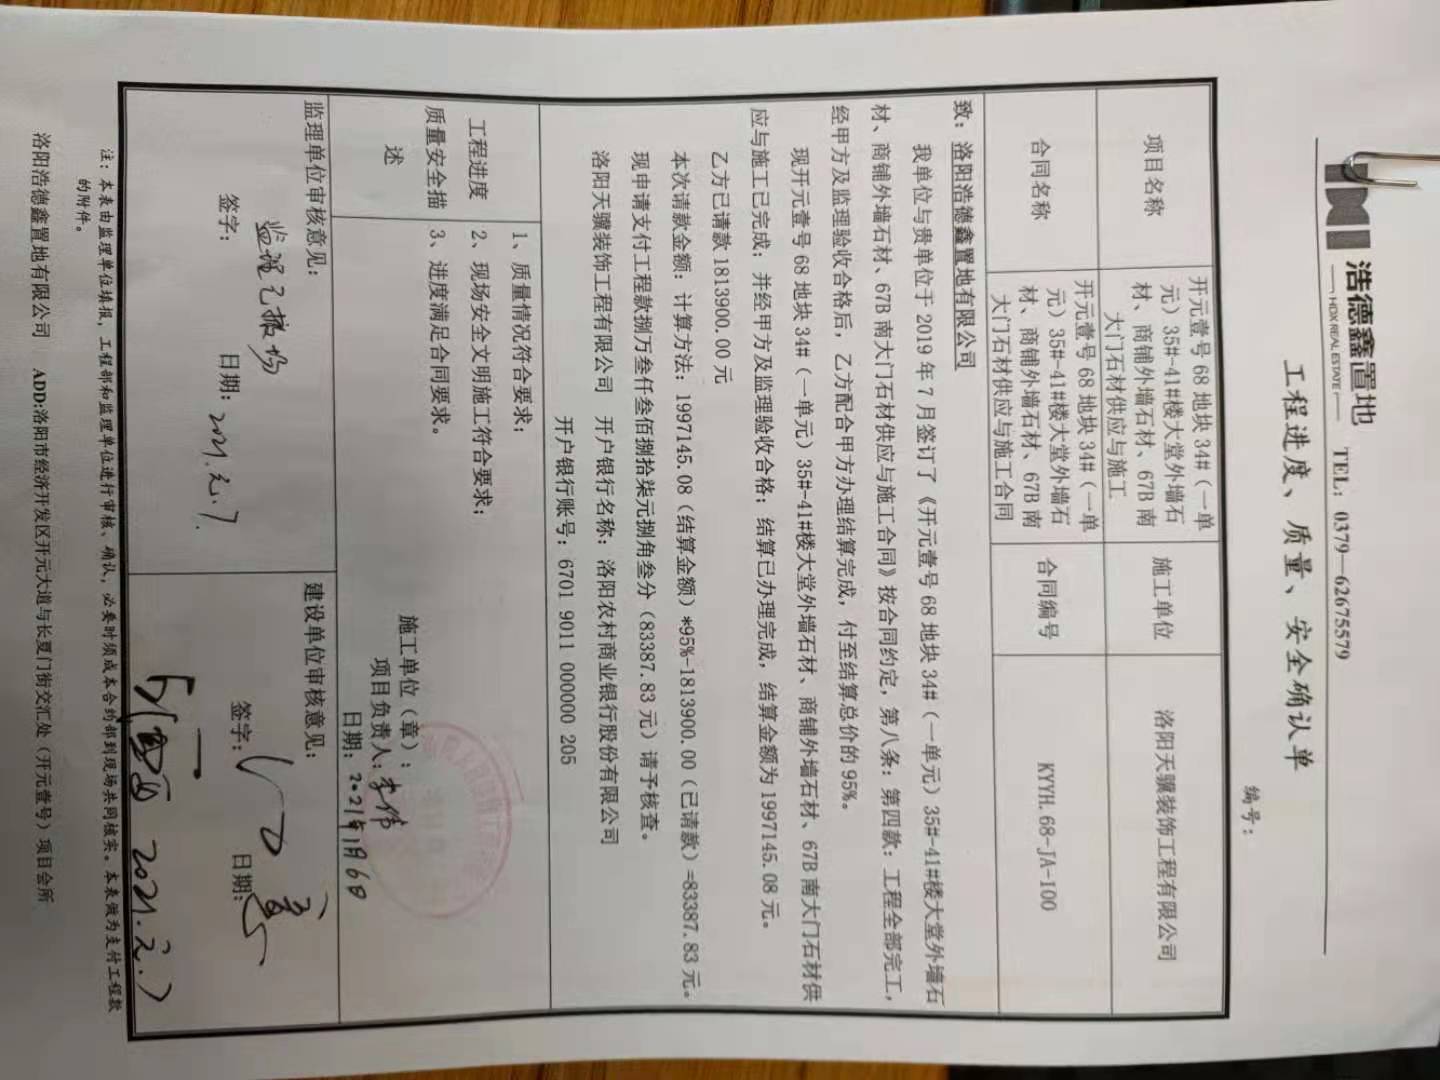 浩德鑫置地
HDX REAL ESTATE
TEL: 0379—62675579
工程进度、质量、安全确认单
编号：
项目名称
开元壹号 68 地块 34#（一单
元）35#-41#楼大堂外墙石
材、商铺外墙石材、67B 南
大门石材供应与施工
施工单位
洛阳天骥装饰工程有限公司
合同名称
开元壹号 68 地块 34#（一单
元）35#-41#楼大堂外墙石
材、商铺外墙石材、67B 南
大门石材供应与施工合同
合同编号
KYYH.68-JA-100
致：洛阳浩德鑫置地有限公司
我单位与贵单位于 2019 年 7 月签订了《开元壹号 68 地块 34#（一单元）35#-41#楼大堂外墙石
材、商铺外墙石材、67B 南大门石材供应与施工合同》按合同约定，第八条：第四款：工程全部完工，
经甲方及监理验收合格后，乙方配合甲方办理结算完成，付至结算总价的 95%。
现开元壹号 68 地块 34#（一单元）35#-41#楼大堂外墙石材、商铺外墙石材、67B 南大门石材供
应与施工已完成；并经甲方及监理验收合格；结算已办理完成，结算金额为 1997145.08 元。
乙方已请款 1813900.00 元
本次请款金额：计算方法：1997145.08（结算金额）*95%-1813900.00（已请款）=83387.83 元。
现申请支付工程款捌万叁仟叁佰捌拾柒元捌角叁分（83387.83 元）请予核查。
洛阳天骥装饰工程有限公司 开户银行名称：洛阳农村商业银行股份有限公司
开户银行账号：6701 9011 000000 205
工程进度
质量安全描
述
1、质量情况符合要求；
2、现场安全文明施工符合要求；
3、进度满足合同要求。
施工单位（章）：
项目负责人：李伟
日期：2021年1月6日
监理单位审核意见：
签字：
日期：2021.元.7.
建设单位审核意见：
签字：
日期：
2021.元.7
注：本表由监理单位填报，工程部和监理单位进行审核、确认，必要时须成本合约部到现场共同核实。本表做为支付工程款
的附件。
洛阳浩德鑫置地有限公司 ADD:洛阳市经济开发区开元大道与长夏门街交汇处（开元壹号）项目会所